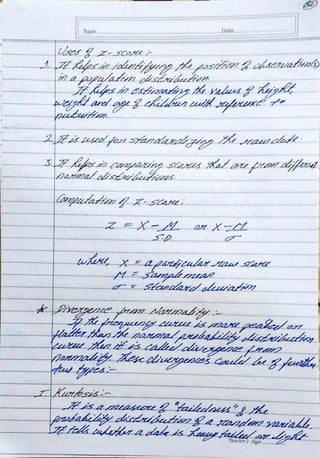 Topic
Date
Uses of z-score :-
1. It helps in identifying the position of observation(s)
in a population distribution
It helps in estimating the values of height
weight and age of children with reference to
nutrition.
2. It is used for standardizing the raw data
3. It helps in comparing scores that are from different
normal distributions.
Computation of Z-score:
Z = X - M or X - M
S.D. σ
where, X = a particular raw score
M = Sample mean
σ = standard deviation
* Divergence from Normality :-
If the frequency curve is more peaked or
flatter than the normal probability distribution
curve then it is called divergence from
normality. These divergences could be of further
two types:-
I. Kurtosis:-
It is a measure of "tailedness" of the
probability distribution of a random variable.
It tells whether a data is heavy tailed or light
Teacher's Sign